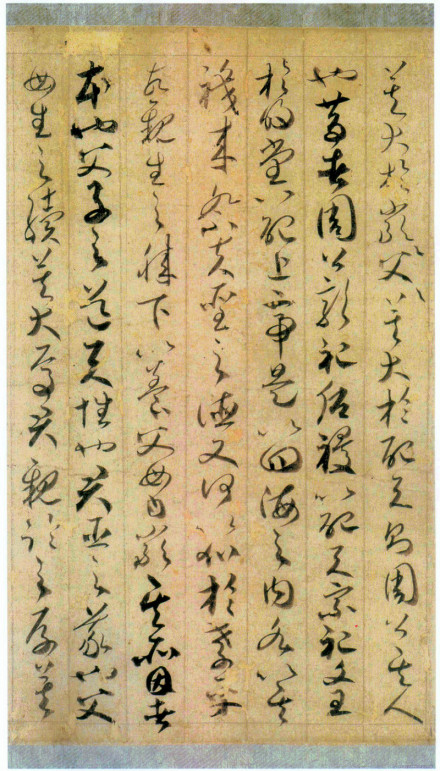 莫大於嚴〻父〻莫大於配天則周公其人
也昔者周公郊祀后稷以配天宗祀文王
於明堂以配上帝是以四海之內各以其
職來祭夫聖之德又何以加於孝乎
故親生之膝下以養父母日嚴其所因者
本也父子之道天性也君臣之義也父
母生之續莫大焉君親臨之厚莫